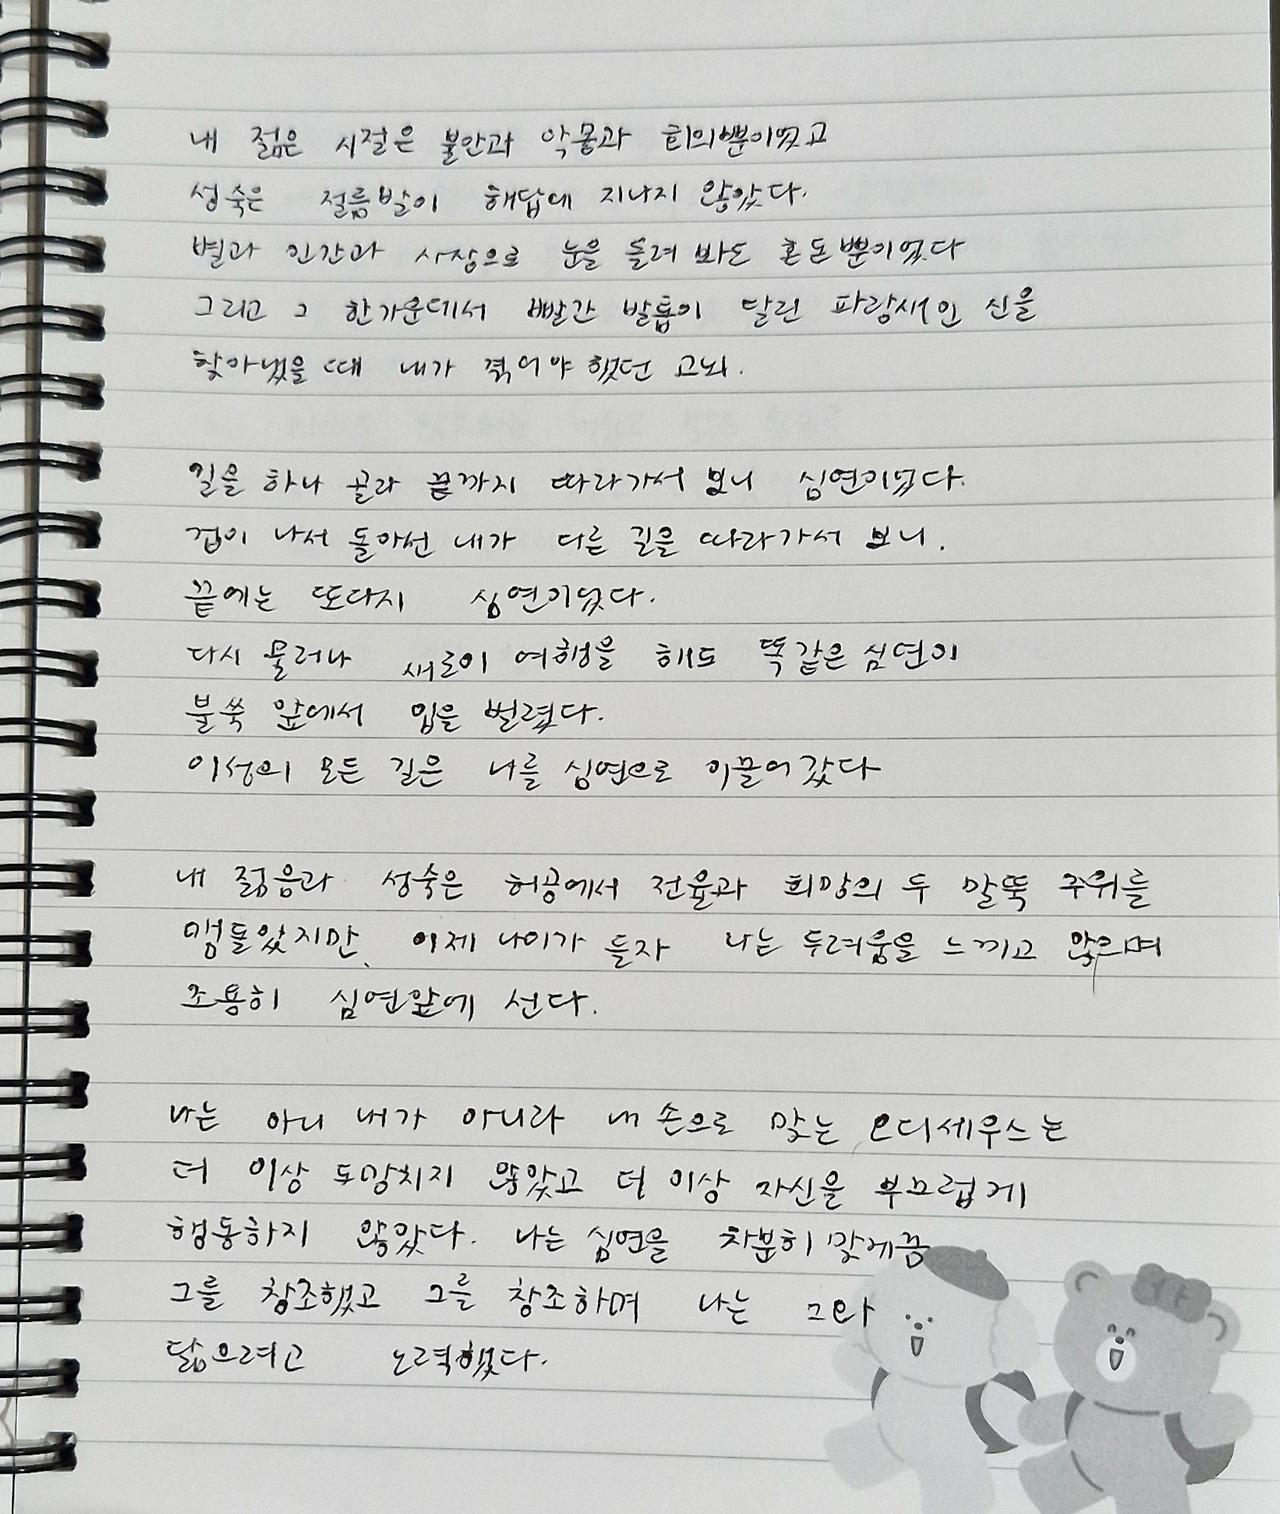 내 젊은 시절은 불안과 악몽과 회의뿐이었고
성숙은 절름발이 해답에 지나지 않았다.
별과 인간과 사상으로 눈을 돌려 봐도 혼돈뿐이었다
그리고 그 한가운데서 빨간 발톱이 달린 파랑새인 신을
찾아냈을 때 내가 겪어야 했던 고뇌.
길을 하나 골라 끝까지 따라가서 보니 심연이었다.
겁이 나서 돌아선 내가 다른 길을 따라가서 보니.
끝에는 또다시 심연이었다.
다시 물러나 새로이 여행을 해도 똑같은 심연이
불쑥 앞에서 입을 벌렸다.
이성의 모든 길은 나를 심연으로 이끌어 갔다
내 젊음과 성숙은 허공에서 전율과 희망의 두 말뚝 주위를
맴돌았지만, 이제 나이가 들자 나는 두려움을 느끼고 않으며
조용히 심연앞에 선다.
나는 아니 내가 아니라 내 손으로 맞는 오디세우스는
더 이상 도망치지 않았고 더 이상 자신을 부끄럽게
행동하지 않았다. 나는 심연을 차분히 맞게끔
그를 창조했고 그를 창조하며 나는 그와
닮으려고 노력했다.